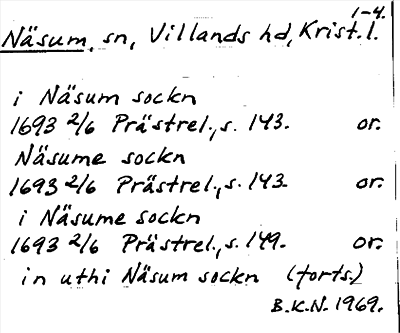 1-4.
Näsum, sn, Villands hd, Krist. l.
i Näsum sockn
1693 2/6 Prästrel., s. 143. or.
Näsume sockn
1693 2/6 Prästrel., s. 143. or.
i Näsume sockn
1693 2/6 Prästrel., s. 149. or.
in uthi Näsum sockn (forts.)
B.K.N. 1969.